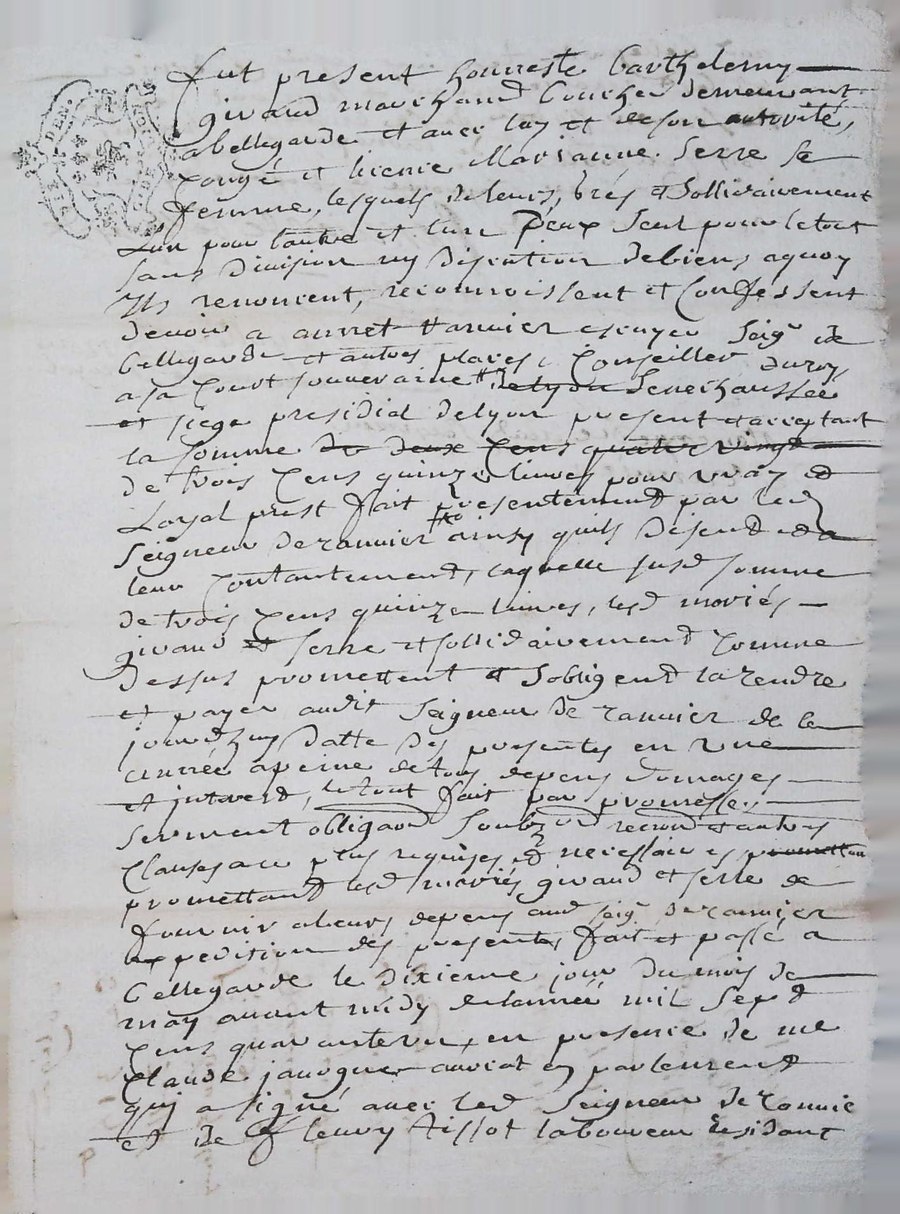 fut present honneste Barthelemy
Giraud marchand boucher demeurant
a bellegarde et avec luy et de son autorité,
congé et licence Marianne Serre sa
femme, lesquels de leurs grés et sollidairement
L'un pour l'autre et l'un d'eux seul pour le tout
sans division ny discution de biens a quoy
Ils renoncent, reconnoissent et confessent
devoir a annet ranvier escuyer seigr de
bellegarde et autres places, conseiller du roy
a sa court souveraine de lyon senechaussée
et siege presidial de lyon present et acceptant
la somme de deux cens quatre vingt
de trois cens quinze livres pour vray et
Loyal prest fait presentement par led
seigneur de ranvier ainsy quils disent et a
leur contantement, laquelle susd somme
de trois cens quinze livres, lesd mariés
giraud et serre et sollidairement comme
dessus promettent et s'obligend la rendre
et payer audit seigneur de ranvier de ce
jourdhuy datte des presentes en une
année a peine de tous depens domages
et interest, le tout fait par promesses,
serment obligaon soubz et recion et autres
clauses au plus requises et necessaires promettan
promettand lesd mariés giraud et serre de
fournir a leurs depens aud seigr de ranvier
expedition des presentes, fait et passé a
bellegarde le dixieme jour du mois de
may avant midy de lannée mil sept
cens quarante en presence de me
claude avocat en parlement
qui a signé avec led seigneur de ranvier
et de fleury tissot laboureur residant